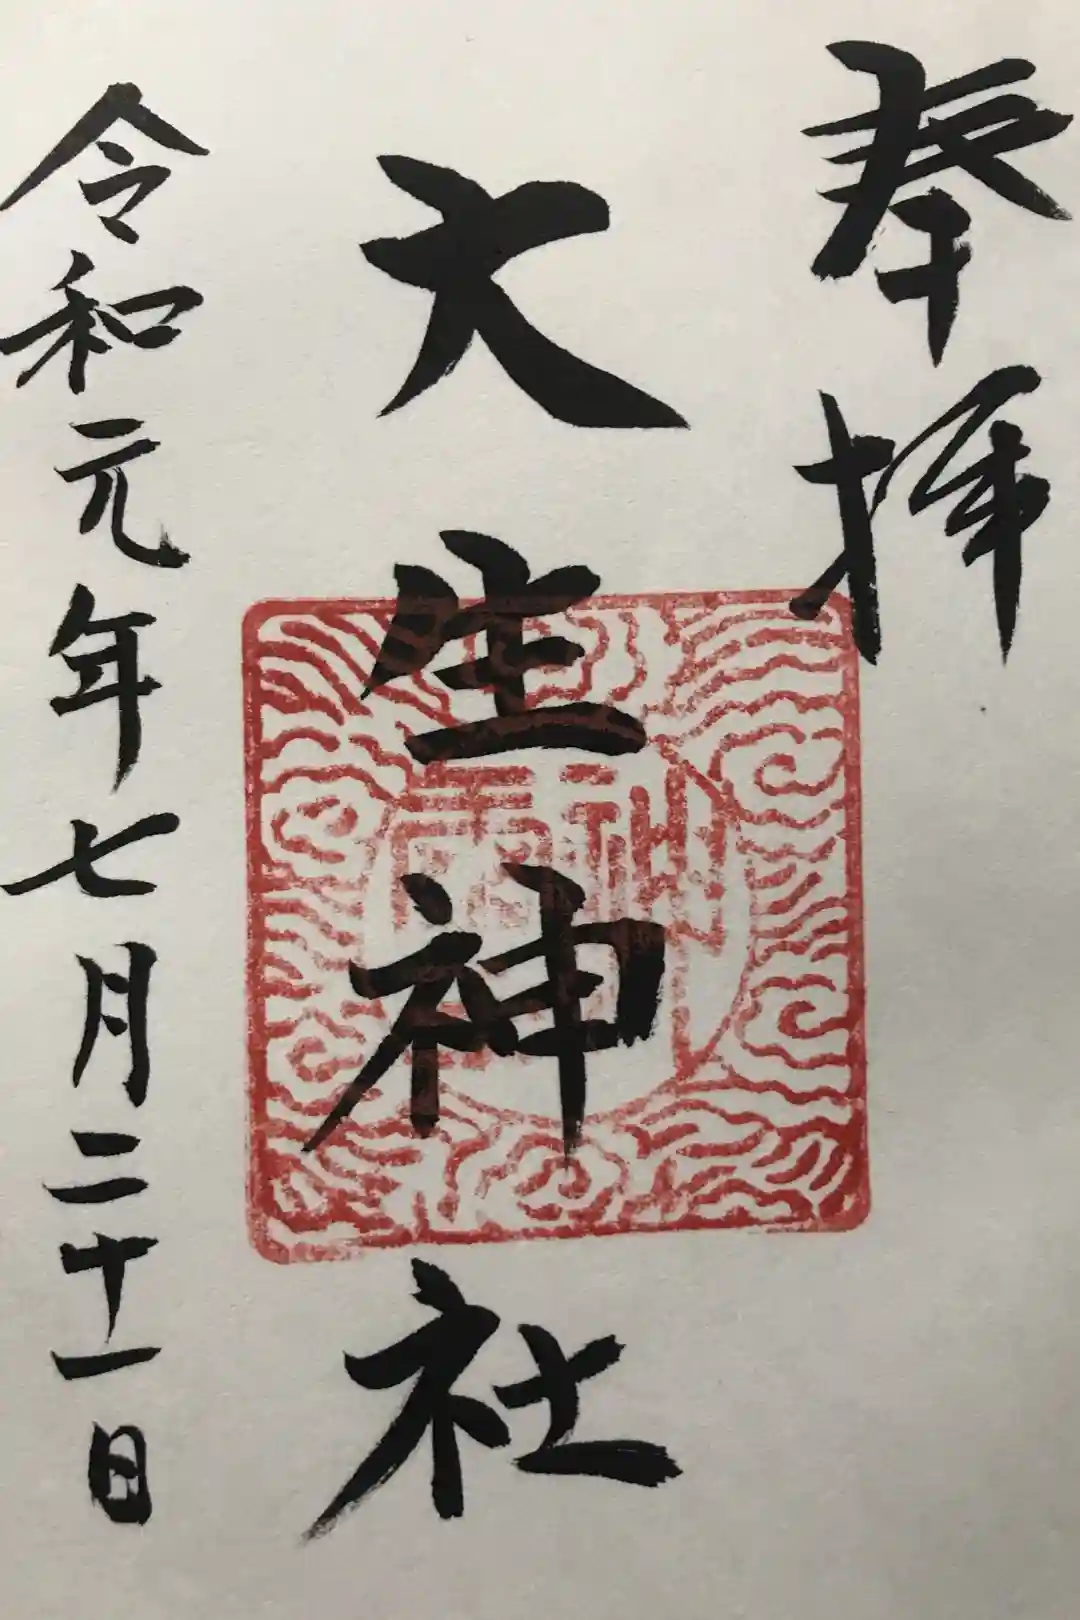 奉拝
大生神社
令和元年七月二十一日